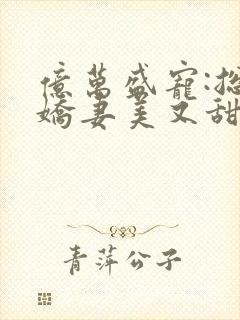 億萬盛寵:總
嬌妻美又甜
青萍公子